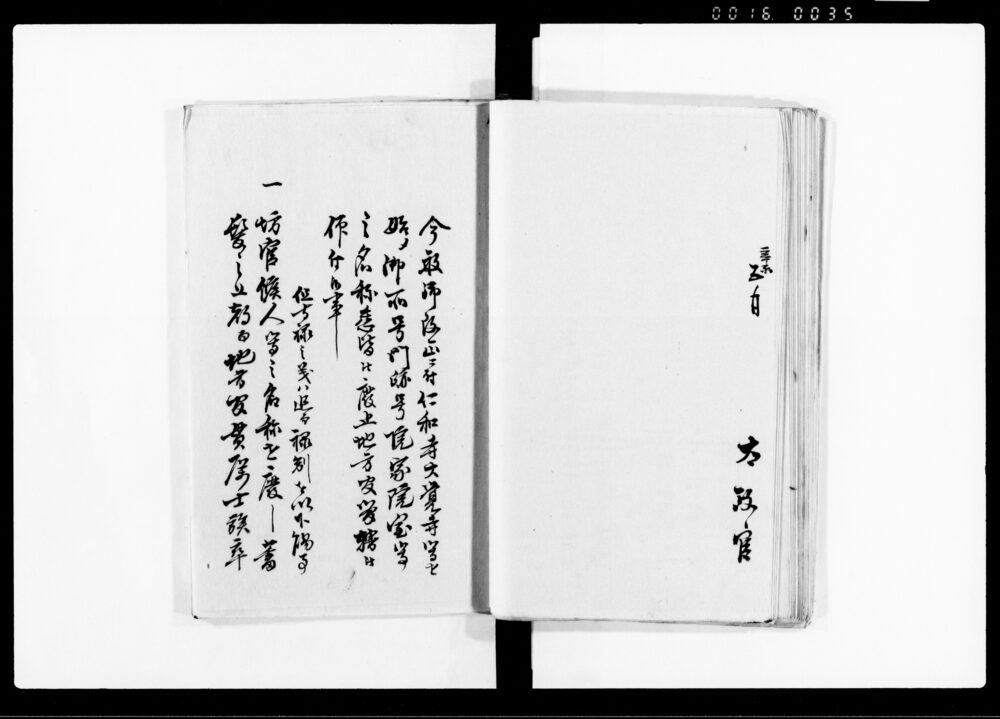 0016 0035
辛未
五月
太政官
今般御改正ニ付仁和寺大覚寺等を
始御所号門跡号院家院室等
之名称悉皆被廃止地方官管轄被
仰付候事
但寺禄之義ハ追而禄制を以下賜候事
一坊官候人等之名称を廃し蓄
髪之上都而地方官貫属士族卒